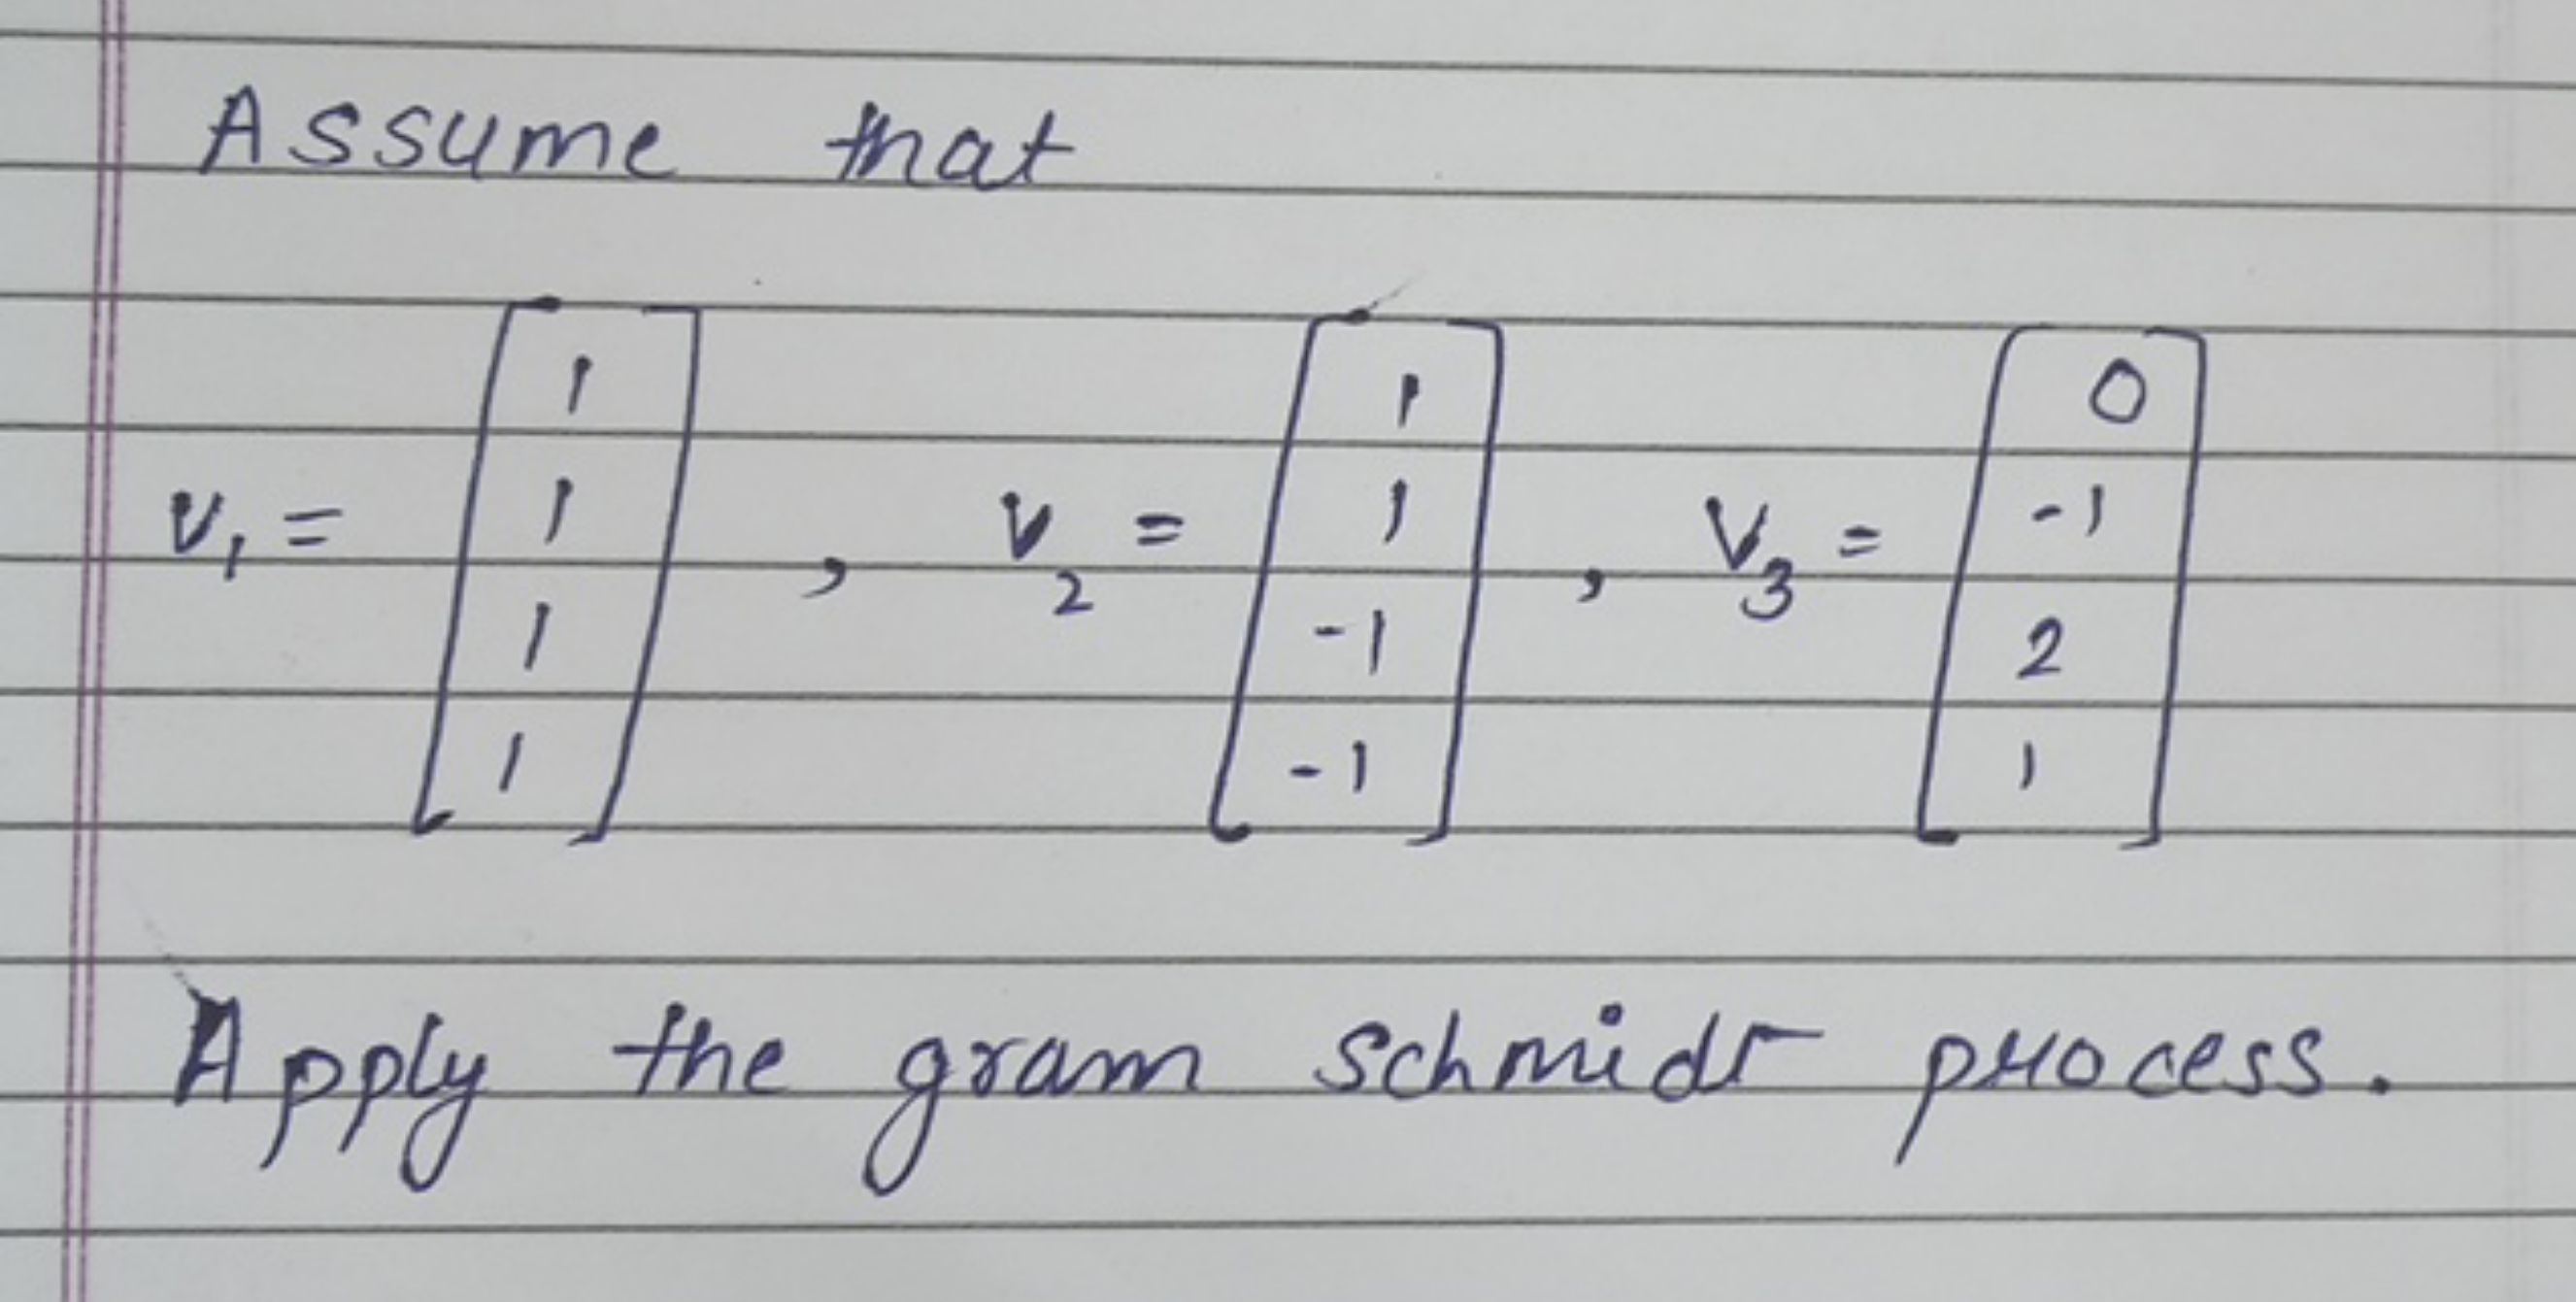 Assume that
v₁ = [1 1 1 1], v₂ = [1 1 -1 -1], v₃ = [0 -1 2 1]
Apply the gram schmidt process.